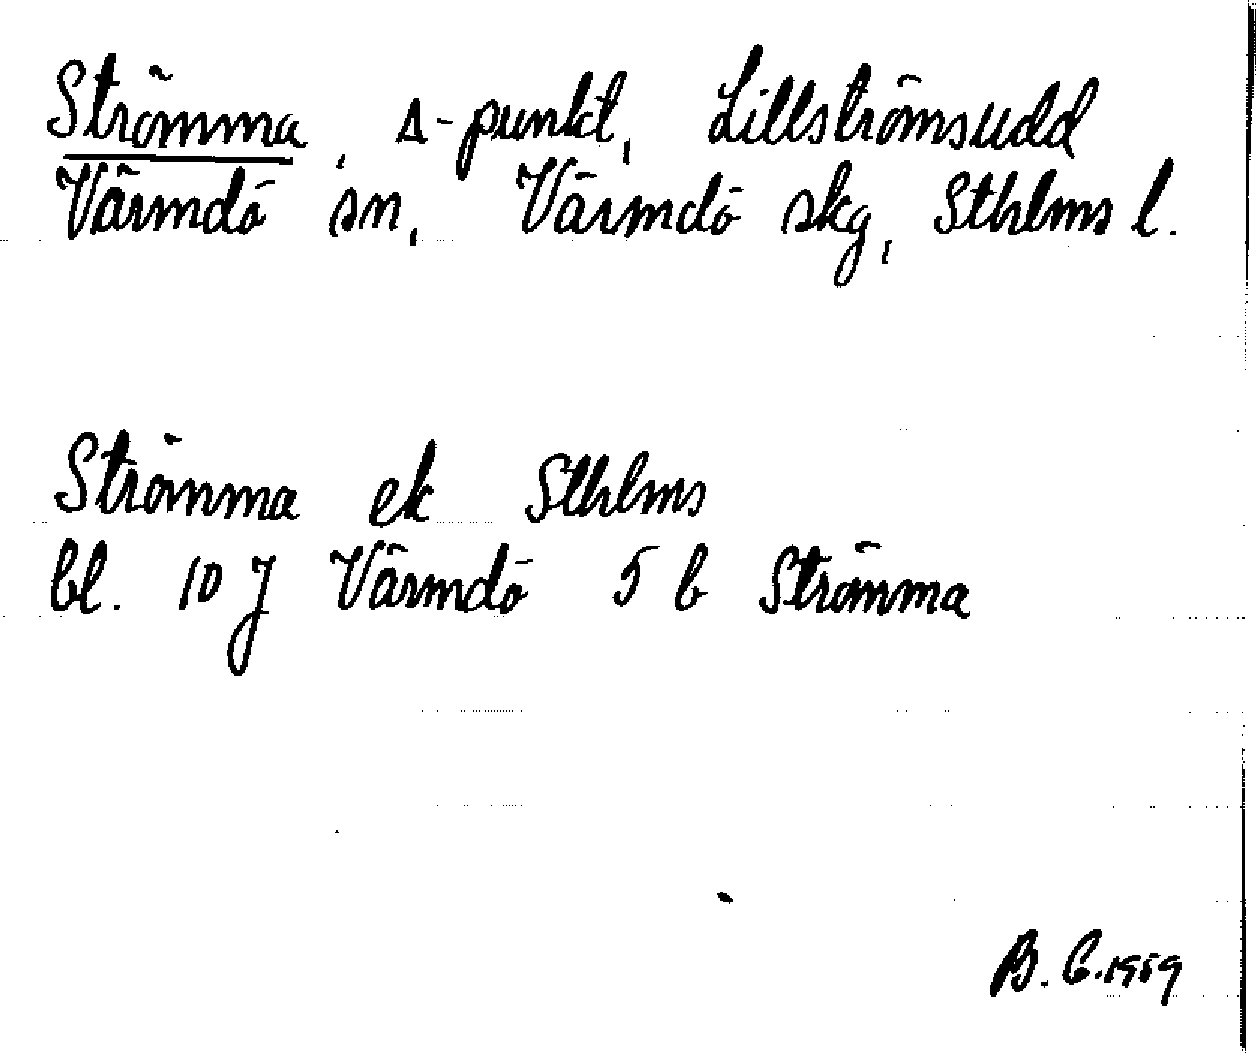 Strömma, Δ-punkt, Lillströmsudd
Värmdö sn, Värmdö skg, Sthlms l.
Strömma ek Sthlms
bl. 10 J Värmdö 5 b Strömma
B. G. 1959